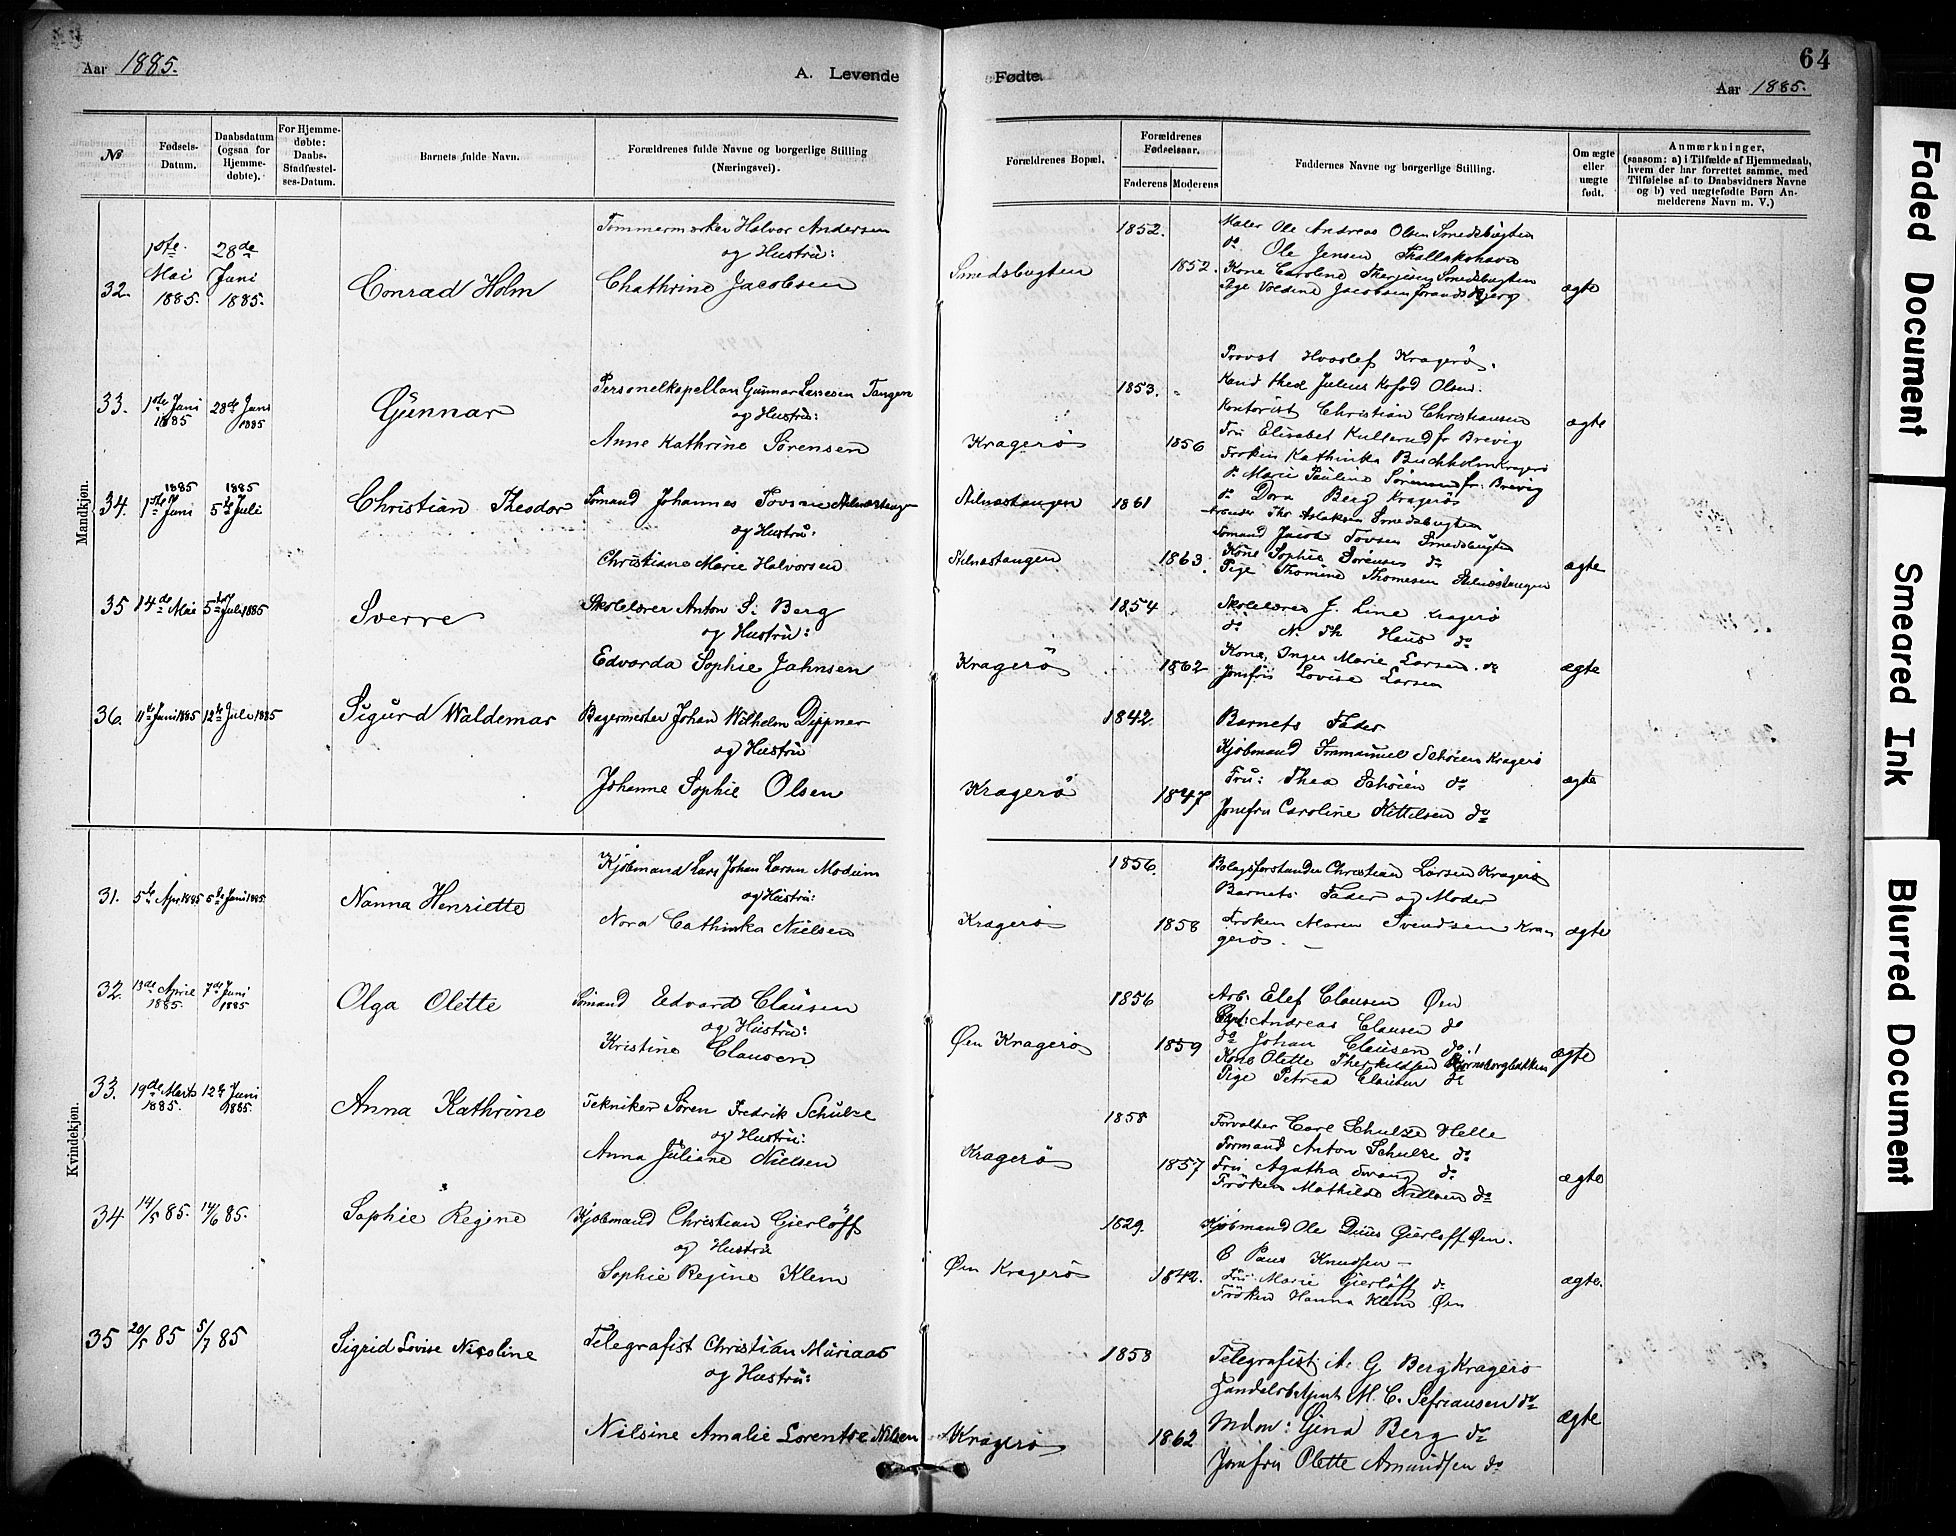 64
Aar 1885.
A. Levende Fødte.
Aar 1885.
№
Fødsels-Datum.
Daabsdatum (ogsaa for Hjemme-døbte).
For Hjemme-døbte: Daabs-Stadfæstel-ses-Datum.
Barnets fulde Navn.
Forældrenes fulde Navne og borgerlige Stilling (Næringsvei).
Forældrenes Bopæl.
Forældrenes Fødselsaar.
Faderens Moderens
Faddernes Navne og borgerlige Stilling.
Om ægte eller uægte født.
Anmærkninger,
(saasom: a) i Tilfælde af Hjemmedaab,
hvem der har forrettet samme, med
Tilføielse af to Daabsvidners Navne
og b) ved uægtefødte Børn An-
melderens Navn m. V.)
Mandkjøn.
32. 1ste Mai 1885. 28de Juni 1885. Conrad Holm
Tømmermærker Halvor Andersen
og Hustru:
Chathrine Jacobsen
Smedsbugten 1852. 1852.
Maler Ole Andreas Olsen Smedsbugten
do Ole Jensen
Kone Caroline Smedsbugten
Pige Voldine Jacobsen
ægte
33. 1ste Juni 1885 28de Juni 1885 Gunnar
Personelkapellan Gunnar Tangen
og Hustru:
Anne Kathrine Sørensen
Kragerø 1853. 1856
Provst Hvoslef Kragerø.
Kand theol Julius Kofod Olsen.
Kontorist Christian Christiansen
Fru Elisabet Kullerud fr Brevig
Frøken Kathinka Buchholm Kragerø
do Marie Pauline Sørensen fr. Brevig
do Dora Berg Kragerø
ægte
34. 1ste Juni 1885 5te Juli 1885 Christian Theodor
Sømand Johannes Tovsen Stilnæstangen
og Hustru:
Christiane Marie Halvorsen
Stilnæstangen 1861
Stilnæstangen 1863.
Thor Aslaksen Smedsbugten
Sømand Jacob Tovsen Smedsbugten
Kone Sophie Sørensen do
Pige Thomine Thomesen Stilnæstangen
ægte
35 14de Mai 5te Juli 1885 Sverre
Skolelærer Anton S. Berg
og Hustru:
Edvarda Sophie Jahnsen
Kragerø 1854 1862
Skolelærer J. Line Kragerø
do N. Th Haus do
Kone Inger Marie Larsen do
Jomfru Lovise Larsen
ægte
36. 11te Juni 1885 12te Juli 1885 Sigurd Waldemar
Bagermester Johan Wilhelm Dippner
og Hustru
Johanne Sophie Olsen
Kragerø 1842. 1847
Barnets Fader
Kjøbmand Immanuel Schøien Kragerø
Fru: Thea Schøien do
Jomfru Caroline Kittilsen do
ægte
Kvindekjøn.
31. 5te Apr. 1885 5te Juni 1885. Nanna Henriette
Kjøbmand Lars Johan Larsen Modum
og Hustru:
Nora Cathinka Nielsen
Kragerø 1856. 1858
Bolagsforstander Christian Larsen Kragerø
Barnets Fader og Moder
Frøken Maren Svendsen Kra-
gerø. —
ægte
32. 13de April 1885. 7de Juni 1885 Olga Olette
Sømand Edvard Clausen
og Hustru:
Kristine Clausen
Øen Kragerø 1856 1859
Arb: Elef Clausen Øen
Capt: Andreas Clausen do
do Johan Clausen do
Kone Olette Therkeldsen Bjørnsborgbakken
Pige Petrea Clausen do
ægte
33. 19de Marts 1885. 12te Juni 1885. Anna Kathrine
Tekniker Søren Fredrik Schulze
og Hustru:
Anna Juliane Nielsen
Kragerø 1858 1857
Forvalter Carl Schulze Helle
Formand Anton Schulze do
Fru Agatha do
Frøken Mathilde Nielsen do
ægte
34 14/5 85. 14/6 85. Sophie Regine
Kjøbmand Christian Gierløff
og Hustru
Sophie Regine Klem
Øen Kragerø 1829. 1842.
Kjøbmand Ole Gierløff Øen.
C Paus Knudsen —
Fru Marie Gierløff do
Frøken Hanna Klem Øen
ægte.
35 20/5 85 5/7 85 Sigrid Lovise Nicoline
Telegrafist Christian Muriaas
og Hustru:
Nilsine Amalie Lorentze Nilsen
Kragerø 1858 1862
Telegrafist A. G Berg Kragerø
Handelsbetjent M. C. Sefriansen do
Mdm: Gina Berg do
Jomfru Olette Amundsen do
ægte
Faded Document
Smeared Ink
Blurred Document